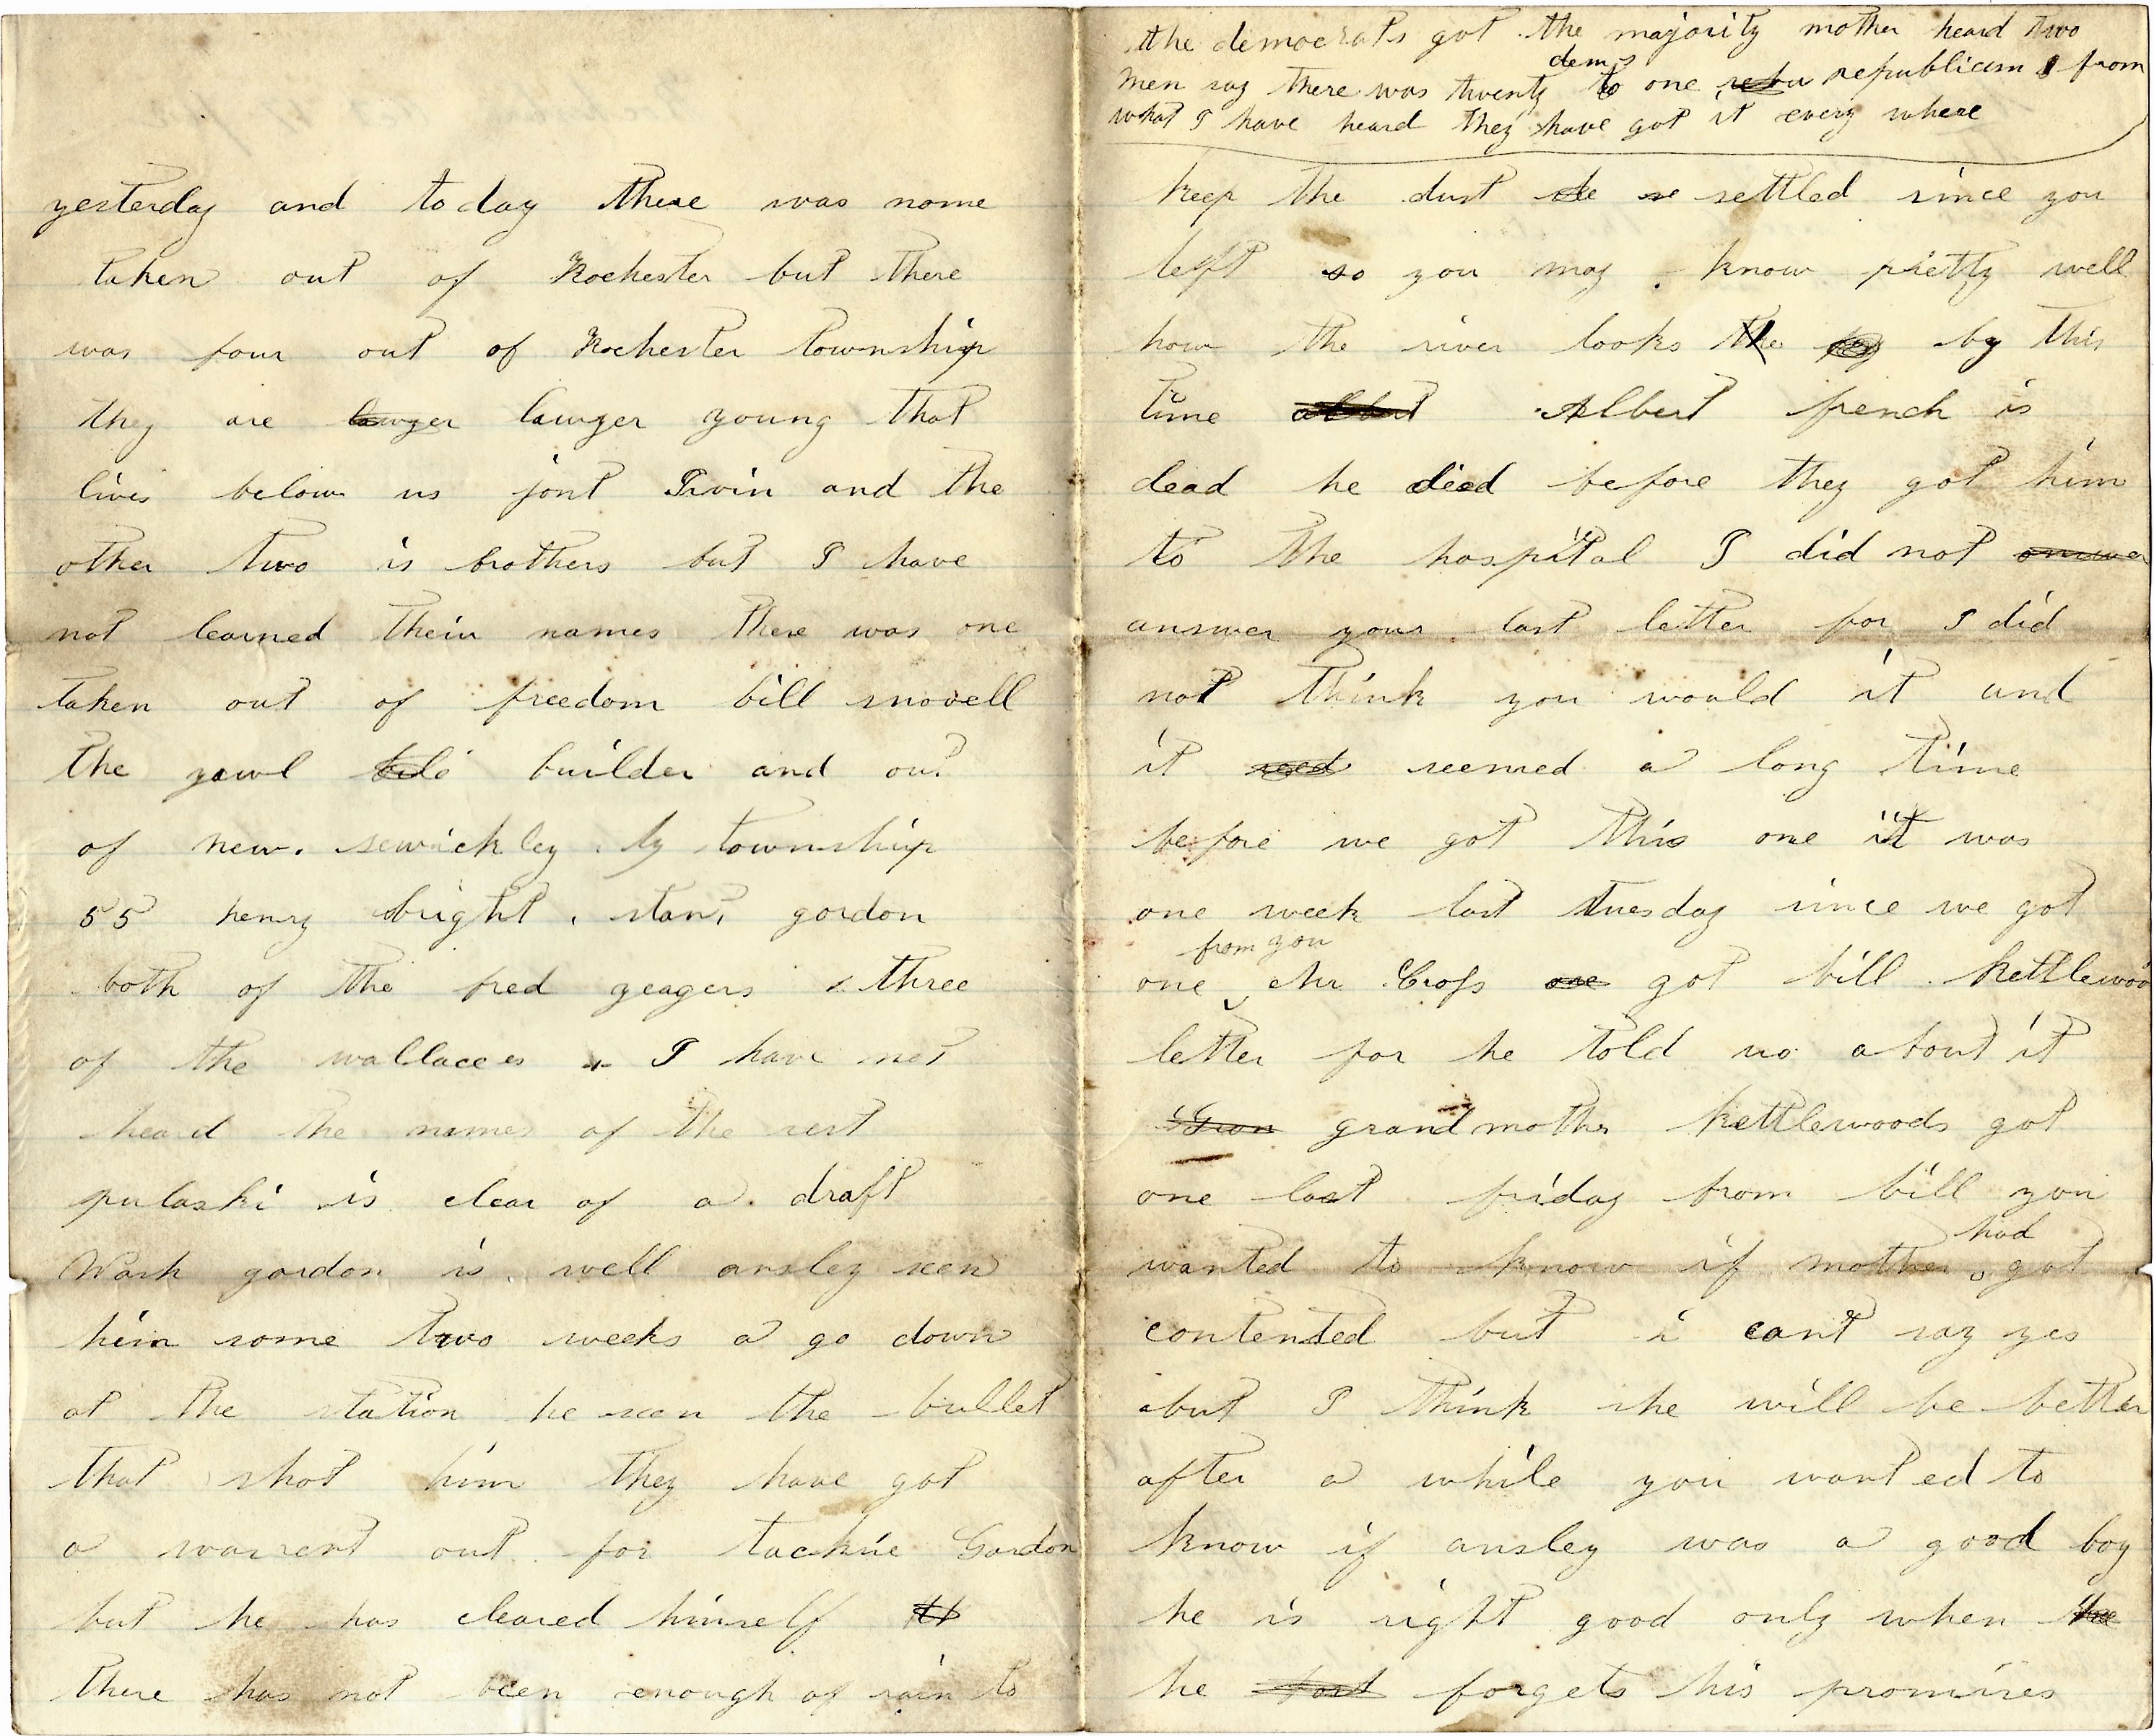 yesterday and to day there was none
taken out of Rochester but there
was four out of Rochester township
they are lawyer lawyer young that
lives below us jont Irvin and the
other two is brothers but I have
not learned their names there was one
taken out of freedom bill snovell
the yawl builder and out
of new. sewickley township
55 henry bright, stant gordon
both of the fred yeagers & three
of the wallacees + I have not
heard the names of the rest
pulaski is clear of a draft
Wash gordon is well ansley seen
him some two weeks a go down
at the station he seen the bullet
that shot him they have got
a warrent out for tackiie Gordon
but he has cleared himself
there has not been enough of rain to
the democrats got the majority mother heard two
dems
men say there was twenty to one repu republican from
what I have heard they have got it every where
keep the dust se se settled since you
left so you may know pretty well
how the river looks the by this
time albert Albert french is
dead he died before they got him
to the hospital I did not answer
answer your last letter for I did
not think you would it and
it seed seemed a long time
before we got this one it was
one week last tuesday since we got
from you
one Mr Cross one got bill kettlewood
letter for he told us a bout it
Gran grandmother kettlewoods got
one last friday from bill you
had
wanted to know if mother got
contented but i cant say yes
but I think she will be better
after a while you want ed to
know if ansley was a good boy
he is right good only when he
he fort forgets his promises